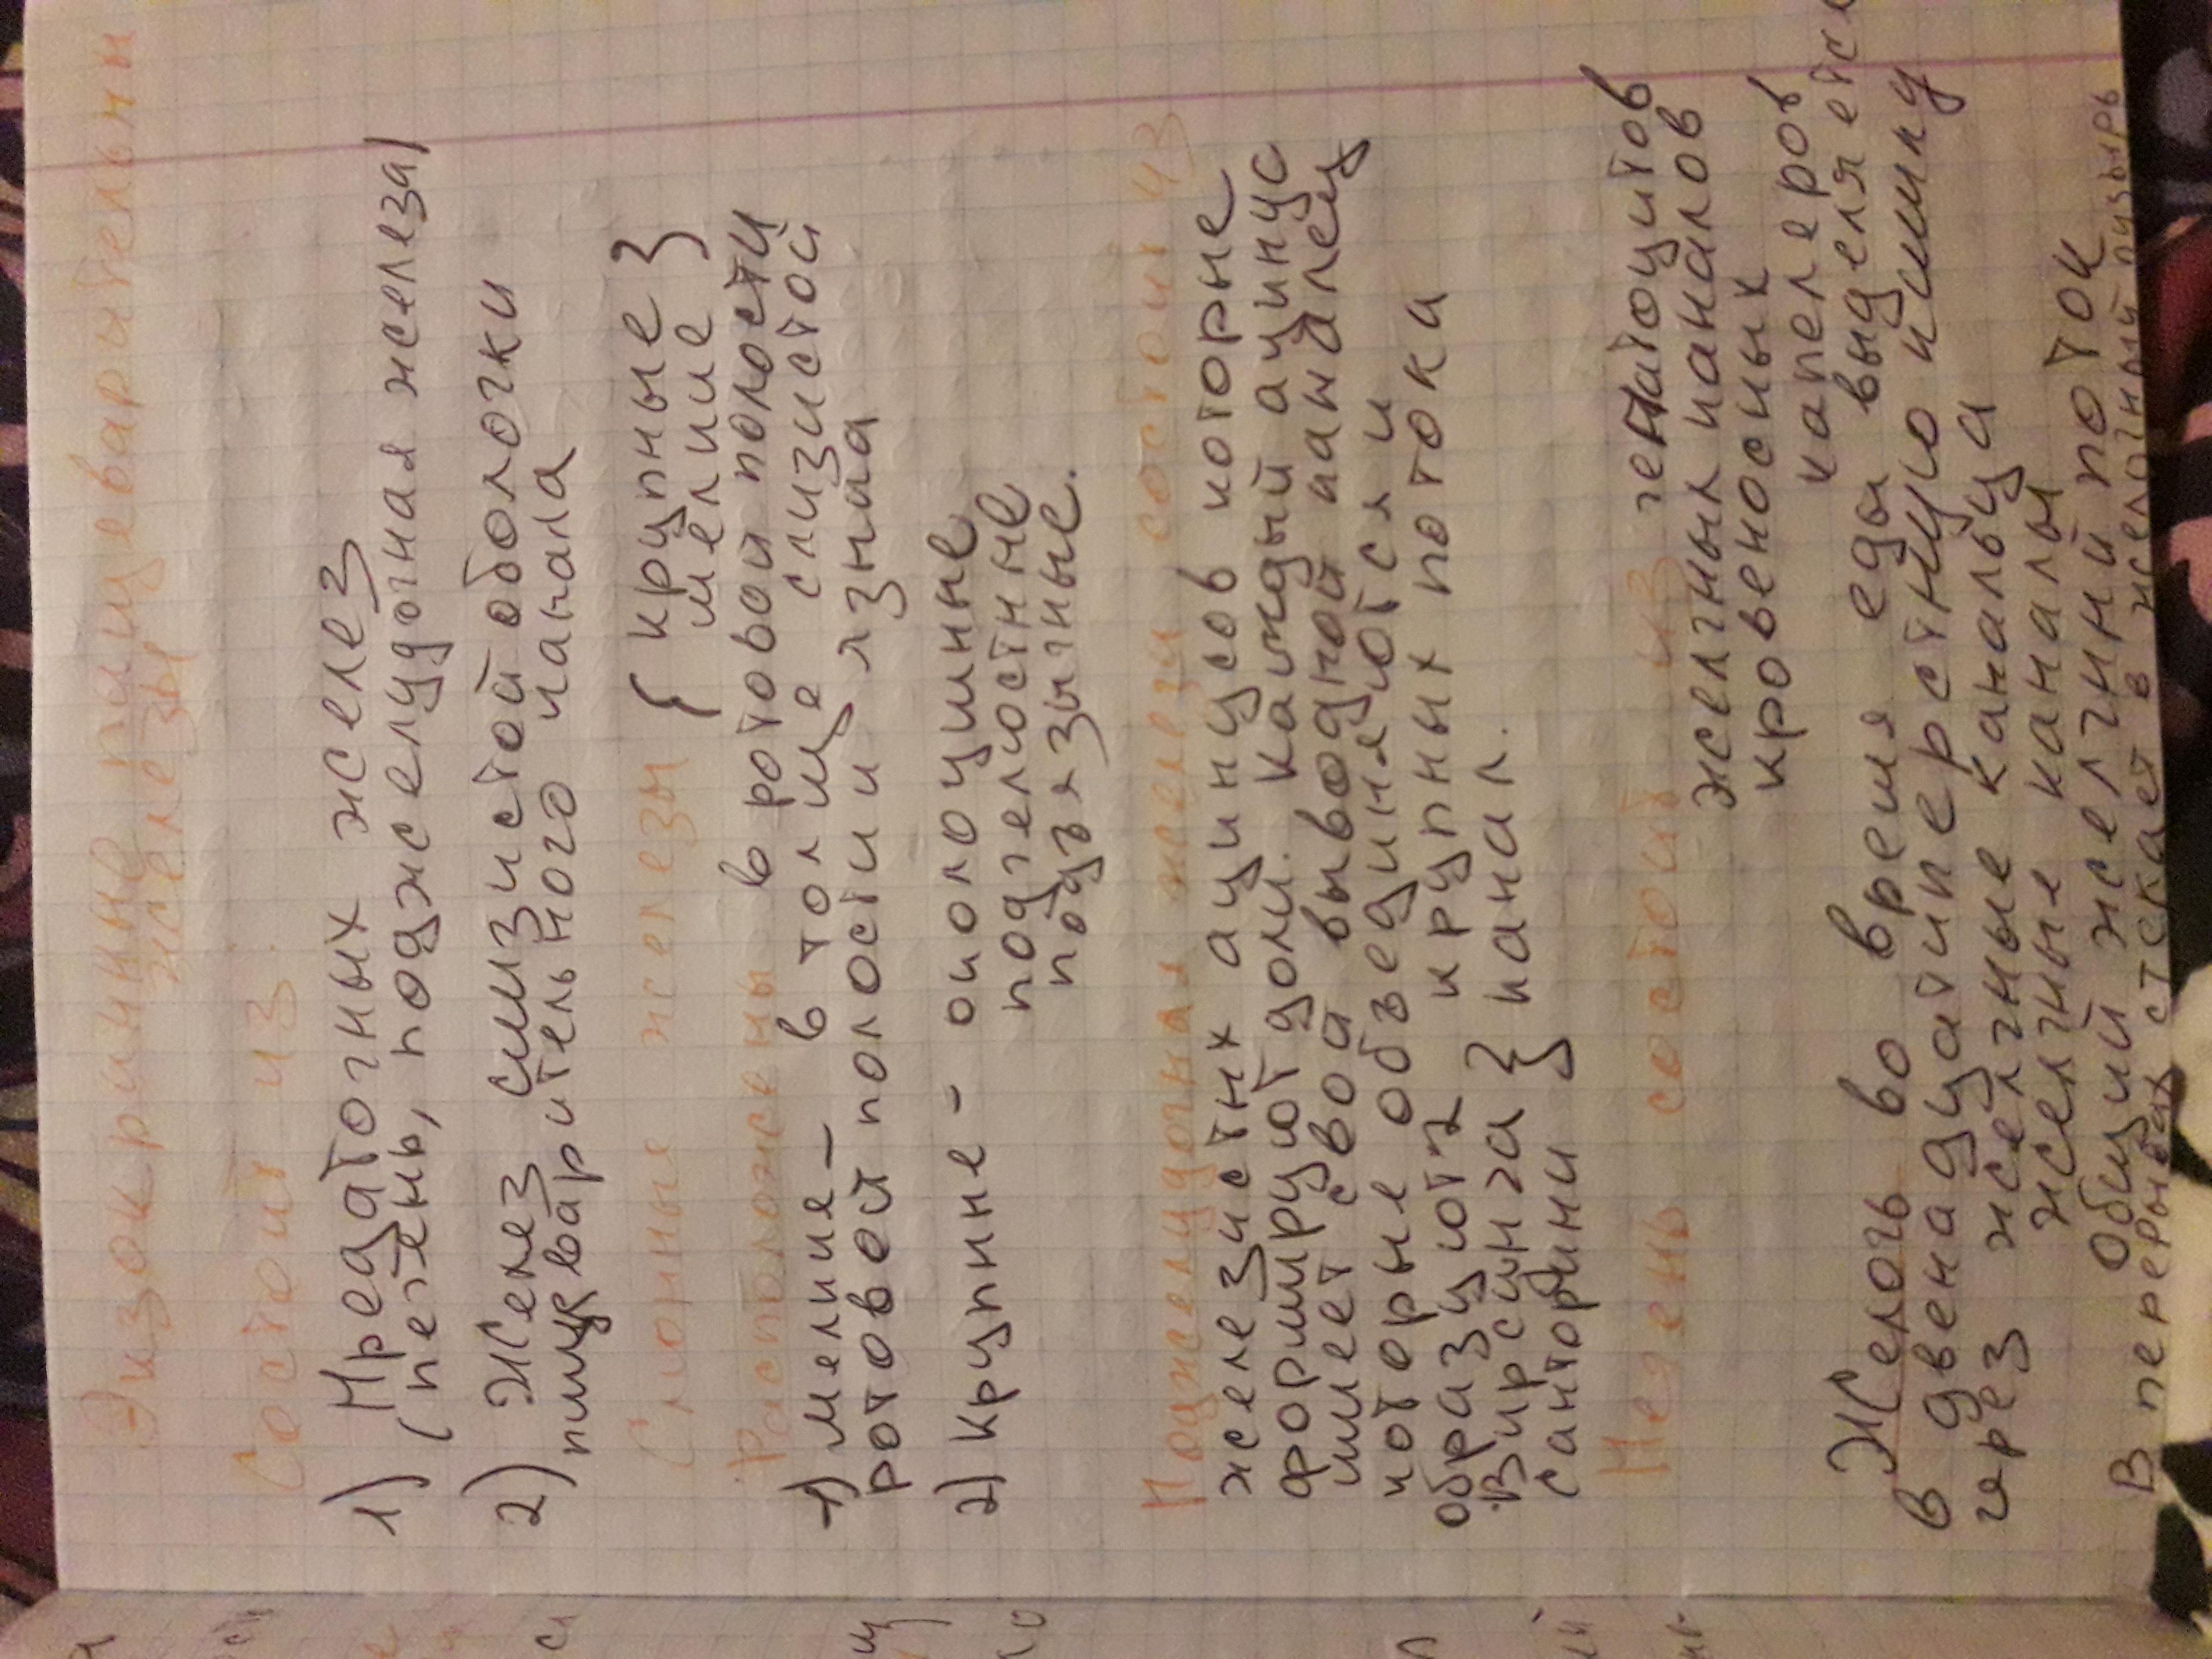 Экзокринные пищеварительны
железы
Состоит из
1) Придаточных желез
(печень, поджелудочная железа)
2) Желез слизистой оболочки
пищеварительного канала
Слюнные железы { крупные }
мелкие
Расположены в ротовой полости
1) мелкие - в толще слизистой
ротовой полости и языка
2) крупные - околоушные
подчелюстные
подъязычные.
Поджелудочная железы состоит из
железистых ацинусов которые
формируют доли. каждый ацинус
имеет свой выводной каналец
которые объединяются и
образуют 2 крупных потока
Вирсунга } канал.
санторини
Печень состоит из гепатоцитов
желчных каналов
кровеносных
капеляров
Желчь во время еды выделяется
в двенадцатиперстную кишку
чрез желчные канальца
желчные каналы
Общий желчный поток
В перерывах стекает в желочный пузырь